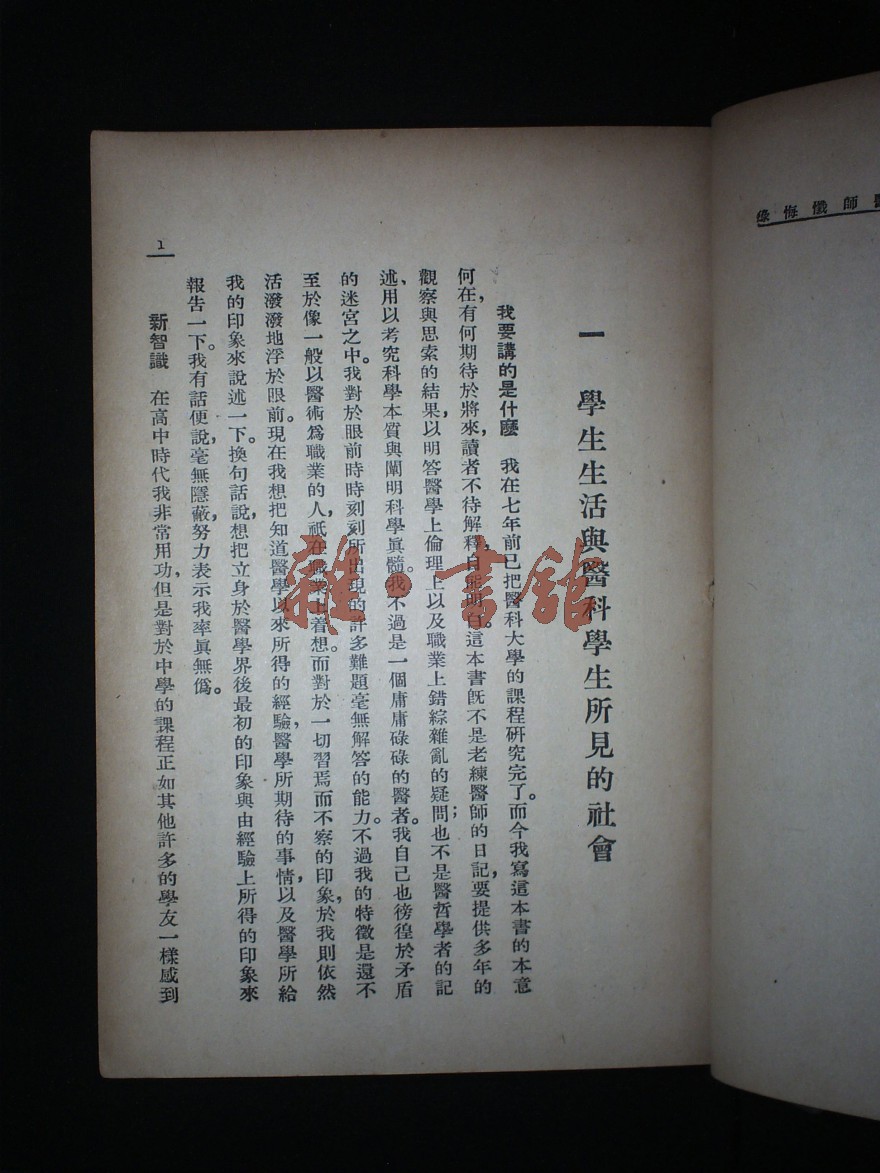 醫師懺悔錄
一　學生生活與醫科學生所見的社會
我要講的是什麼　我在七年前已把醫科大學的課程硏究完了。而今我寫這本書的本意
何在，有何期待於將來，讀者不待解釋，自能明白。這本書旣不是老練醫師的日記，要提供多年的
觀察與思索的結果，以明答醫學上倫理上以及職業上錯綜雜亂的疑問；也不是醫哲學者的記
述、用以考究科學本質與闡明科學眞髓。我不過是一個庸庸碌碌的醫者。我自己也徬徨於矛盾
的迷宮之中。我對於眼前時時刻刻所出現的許多難題毫無解答的能力。不過我的特徵是還不
至於像一般以醫術爲職業的人，祇在職業上着想。而對於一切習焉而不察的印象，於我則依然
活潑潑地浮於眼前。現在我想把知道醫學以來所得的經驗，醫學所期待的事情，以及醫學所給
我的印象來說述一下。換句話說，想把立身於醫學界後最初的印象與由經驗上所得的印象來
報告一下。我有話便說，毫無隱蔽，努力表示我率眞無僞。
新智識　在高中時代我非常用功，但是對於中學的課程正如其他許多的學友一樣感到
1
雜·書館